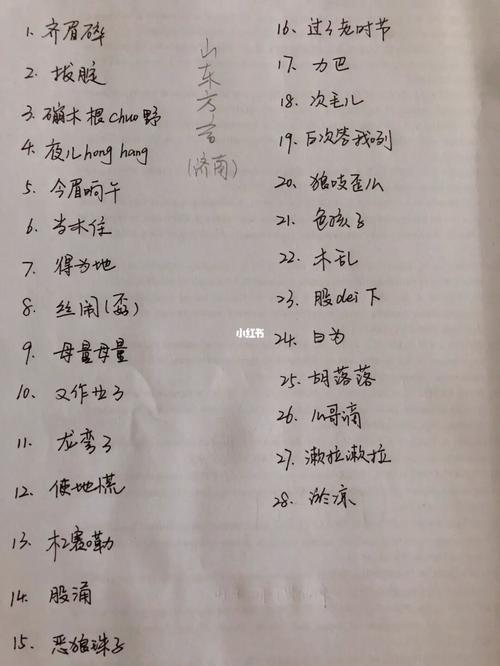 1. 齐眉碎
2. 拔腚
3. 硼木根chuo野
4. 夜儿hong hang
5. 今眉晌午
6. 当木住
7. 得为地
8. 丝闹(孬)
9. 母量母量
10. 又作业了
11. 龙弯了
12. 使地慌
13. 木赛嘞
14. 股涌
15. 恶狼珠子
山东方言
(济南)
16. 过了老时节
17. 力巴
18. 次毛儿
19. 后次答我咧
20. 狼吱歪么
21. 色孩子
22. 木乱
23. 股dei下
24. 日为
25. 胡落落
26. 么哥滴
27. 漱拉漱拉
28. 冷凉
小红书